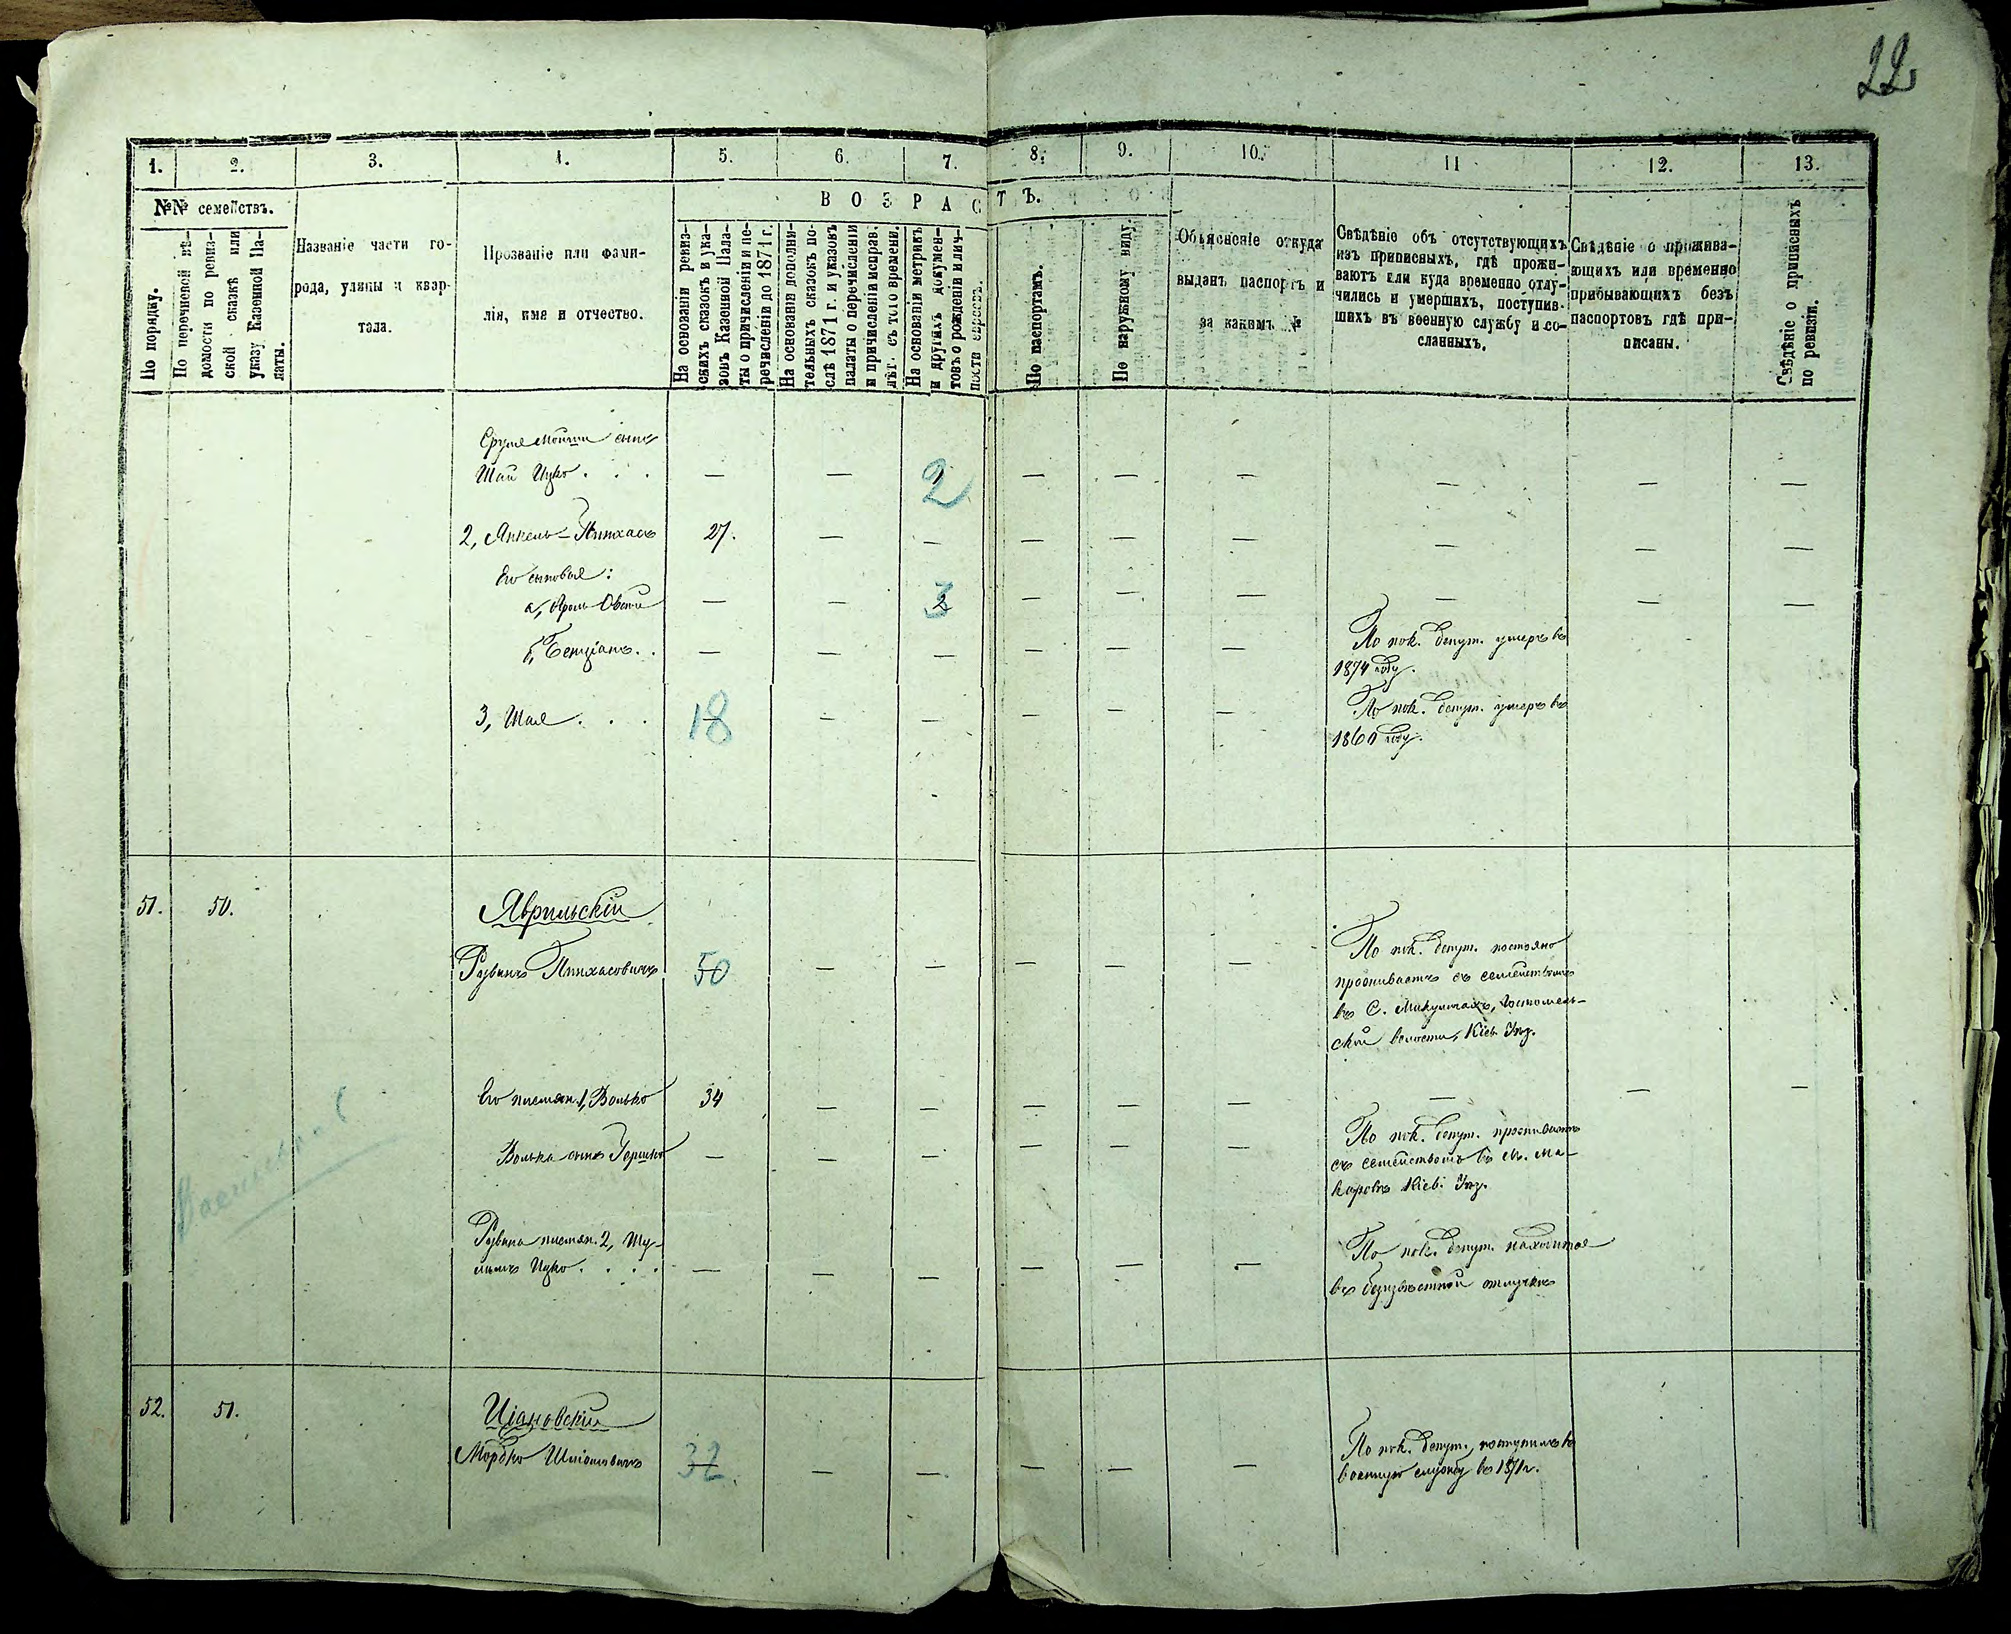 22
1. 2. 3. 4. 5. 6. 7. 8. 9. 10. 11 12. 13.
№№ семействъ.
В О З Р А С Т Ъ.
По порядку.
По перечневой вѣ-
домости по ревиз-
ской сказкѣ или
указу Казенной Па-
латы.
Названіе части го-
рода, улицы и квар-
тала.
Прозваніе или фами-
лія, имя и отчество.
На основаніи ревиз-
скихъ сказокъ и ука-
зовъ Казенной Пала-
ты о причисленіи и пе-
речисленіи до 1871 г.
На основаніи дополни-
тельныхъ сказокъ по-
слѣ 1871 г. и указовъ
палаты о перечисленіи
и причисленіи исправ.
лѣт. съ того времени.
На основаніи метрикъ
и другихъ докумен-
товъ о рожденіи и лич-
ности евреевъ.
По паспортамъ.
По наружному виду.
Объясненіе откуда
выданъ паспортъ и
за какимъ №
Свѣдѣніе объ отсутствующихъ
изъ приписныхъ, гдѣ прожи-
ваютъ или куда временно отлу-
чились и умершихъ, поступив-
шихъ въ военную службу и со-
сланныхъ.
Свѣдѣніе о прожива-
ющихъ или временно
прибывающихъ безъ
паспортовъ гдѣ при-
писаны.
Свѣдѣніе о приписныхъ
по ревизіи.
Сруля Мошки сынъ
Шай Ицко . . . — — 2 — — — — — —
2, Янкель-Пинхасъ 27. — — — — — — — —
Его сыновья:
а, Аронъ Овсій — — 3 — — — — — —
б, Бенціанъ. . — — — — — — По пок. депут. умеръ въ
1874 году.
3, Шая . . . 18 — — — — — По пок. депут. умеръ въ
1860 году.
51. 50. Яврильскій
Рувинъ Пинхасовичъ 50 — — — — — По пок. депут. постояно
проживаетъ съ семействомъ
въ С. Микуличахъ, Гостомель-
ской волости, Кіев. Уѣз.
Его племян. 1, Волько 34 — — — — — — — —
Волька сынъ Гершко — — — — — — По пок. депут. проживаетъ
съ семействомъ въ м. Ма-
каровѣ Кіев. Уѣз.
Рувина племян. 2, Шу-
лимъ Ицко . . . . — — — — — — По пок. депут. находится
въ безизвѣстной отлучкѣ
52. 51.
Мордко 32. — — — — — По пок. депут. поступилъ въ
военную службу въ 1871 г.